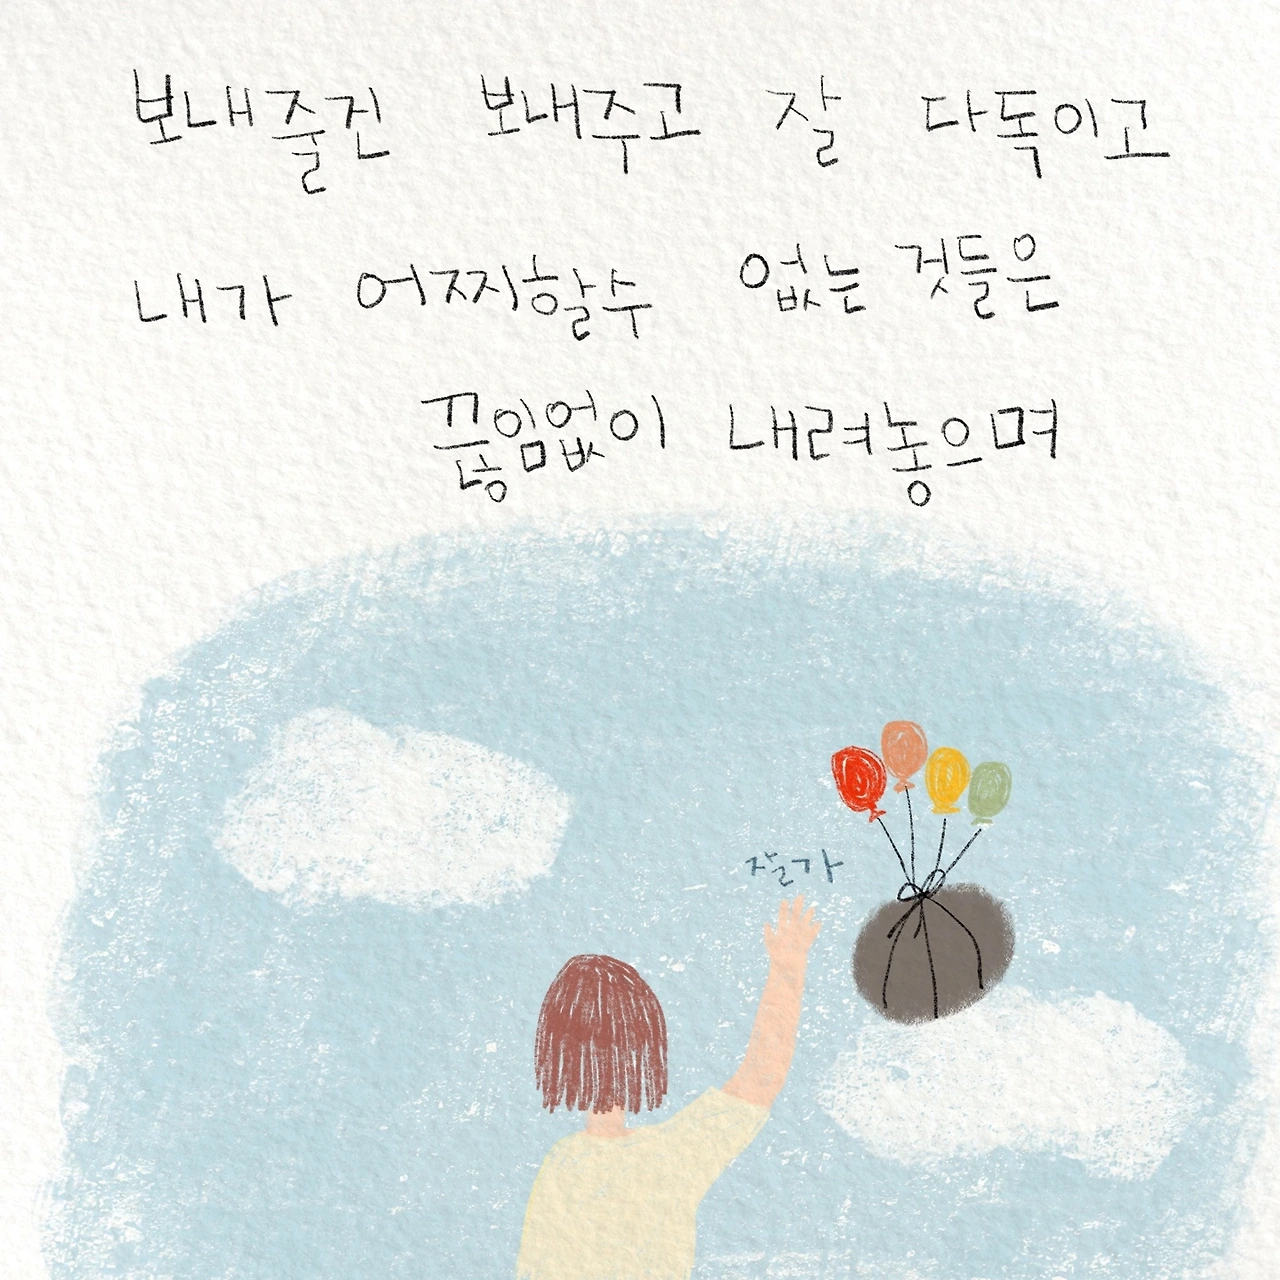 보내줄건 보내주고 잘 다독이고
내가 어찌할수 없는 것들은
끊임없이 내려놓으며
잘가